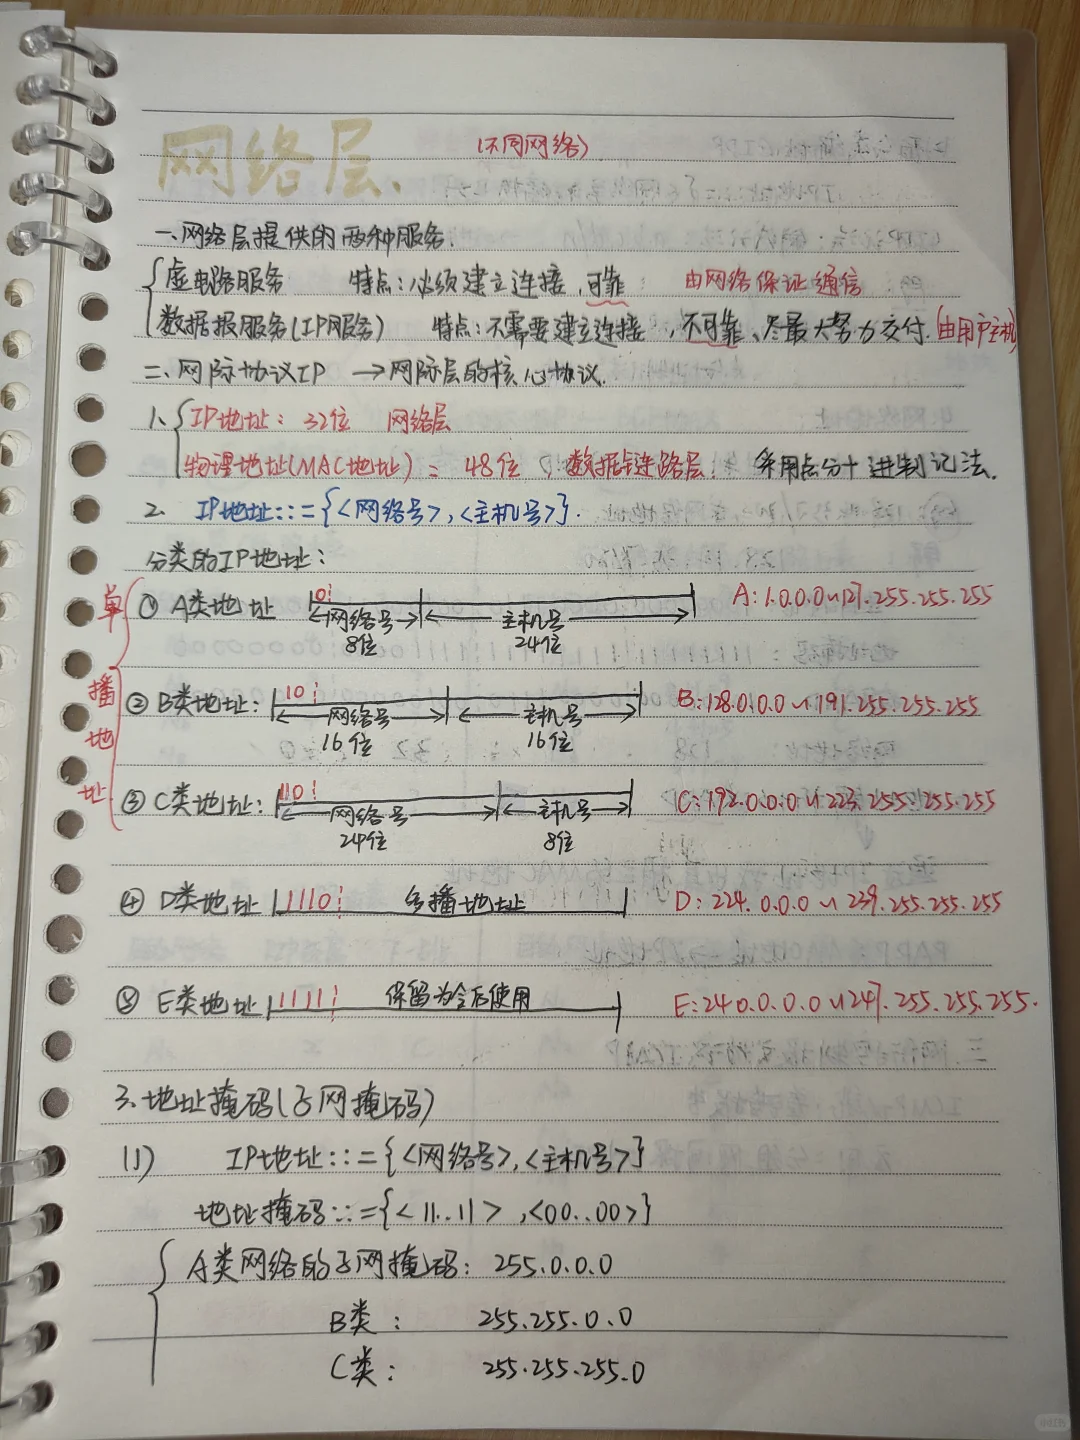 网络层、 (不同网络)
一、网络层提供的两种服务.
虚电路服务 特点:必须建立连接、可靠 由网络保证通信
数据报服务(IP服务) 特点:不需要建立连接,不可靠、尽最大努力交付.(由用户主机)
二、网际协议IP →网际层的核心协议.
1、IP地址: 32位 网络层
物理地址(MAC地址)= 48位,数据链路层. 采用点分十进制记法.
2. IP地址::={<网络号>,<主机号>}.
分类的IP地址:
单播地址
① A类地址 0 A:1.0.0.0~127.255.255.255
网络号 主机号
8位 24位
② B类地址: 10 B:128.0.0.0~191.255.255.255
网络号 主机号
16位 16位
③ C类地址: 110 C:192.0.0.0~223.255.255.255
网络号 主机号
24位 8位
④ D类地址 1110 多播地址 D:224.0.0.0~239.255.255.255
⑤ E类地址 1111 保留为今后使用 E:240.0.0.0~247.255.255.255.
3.地址掩码(子网掩码)
(1) IP地址::={<网络号>,<主机号>}
地址掩码::={<11..11>,<00..00>}
A类网络的子网掩码: 255.0.0.0
B类: 255.255.0.0
C类: 255.255.255.0